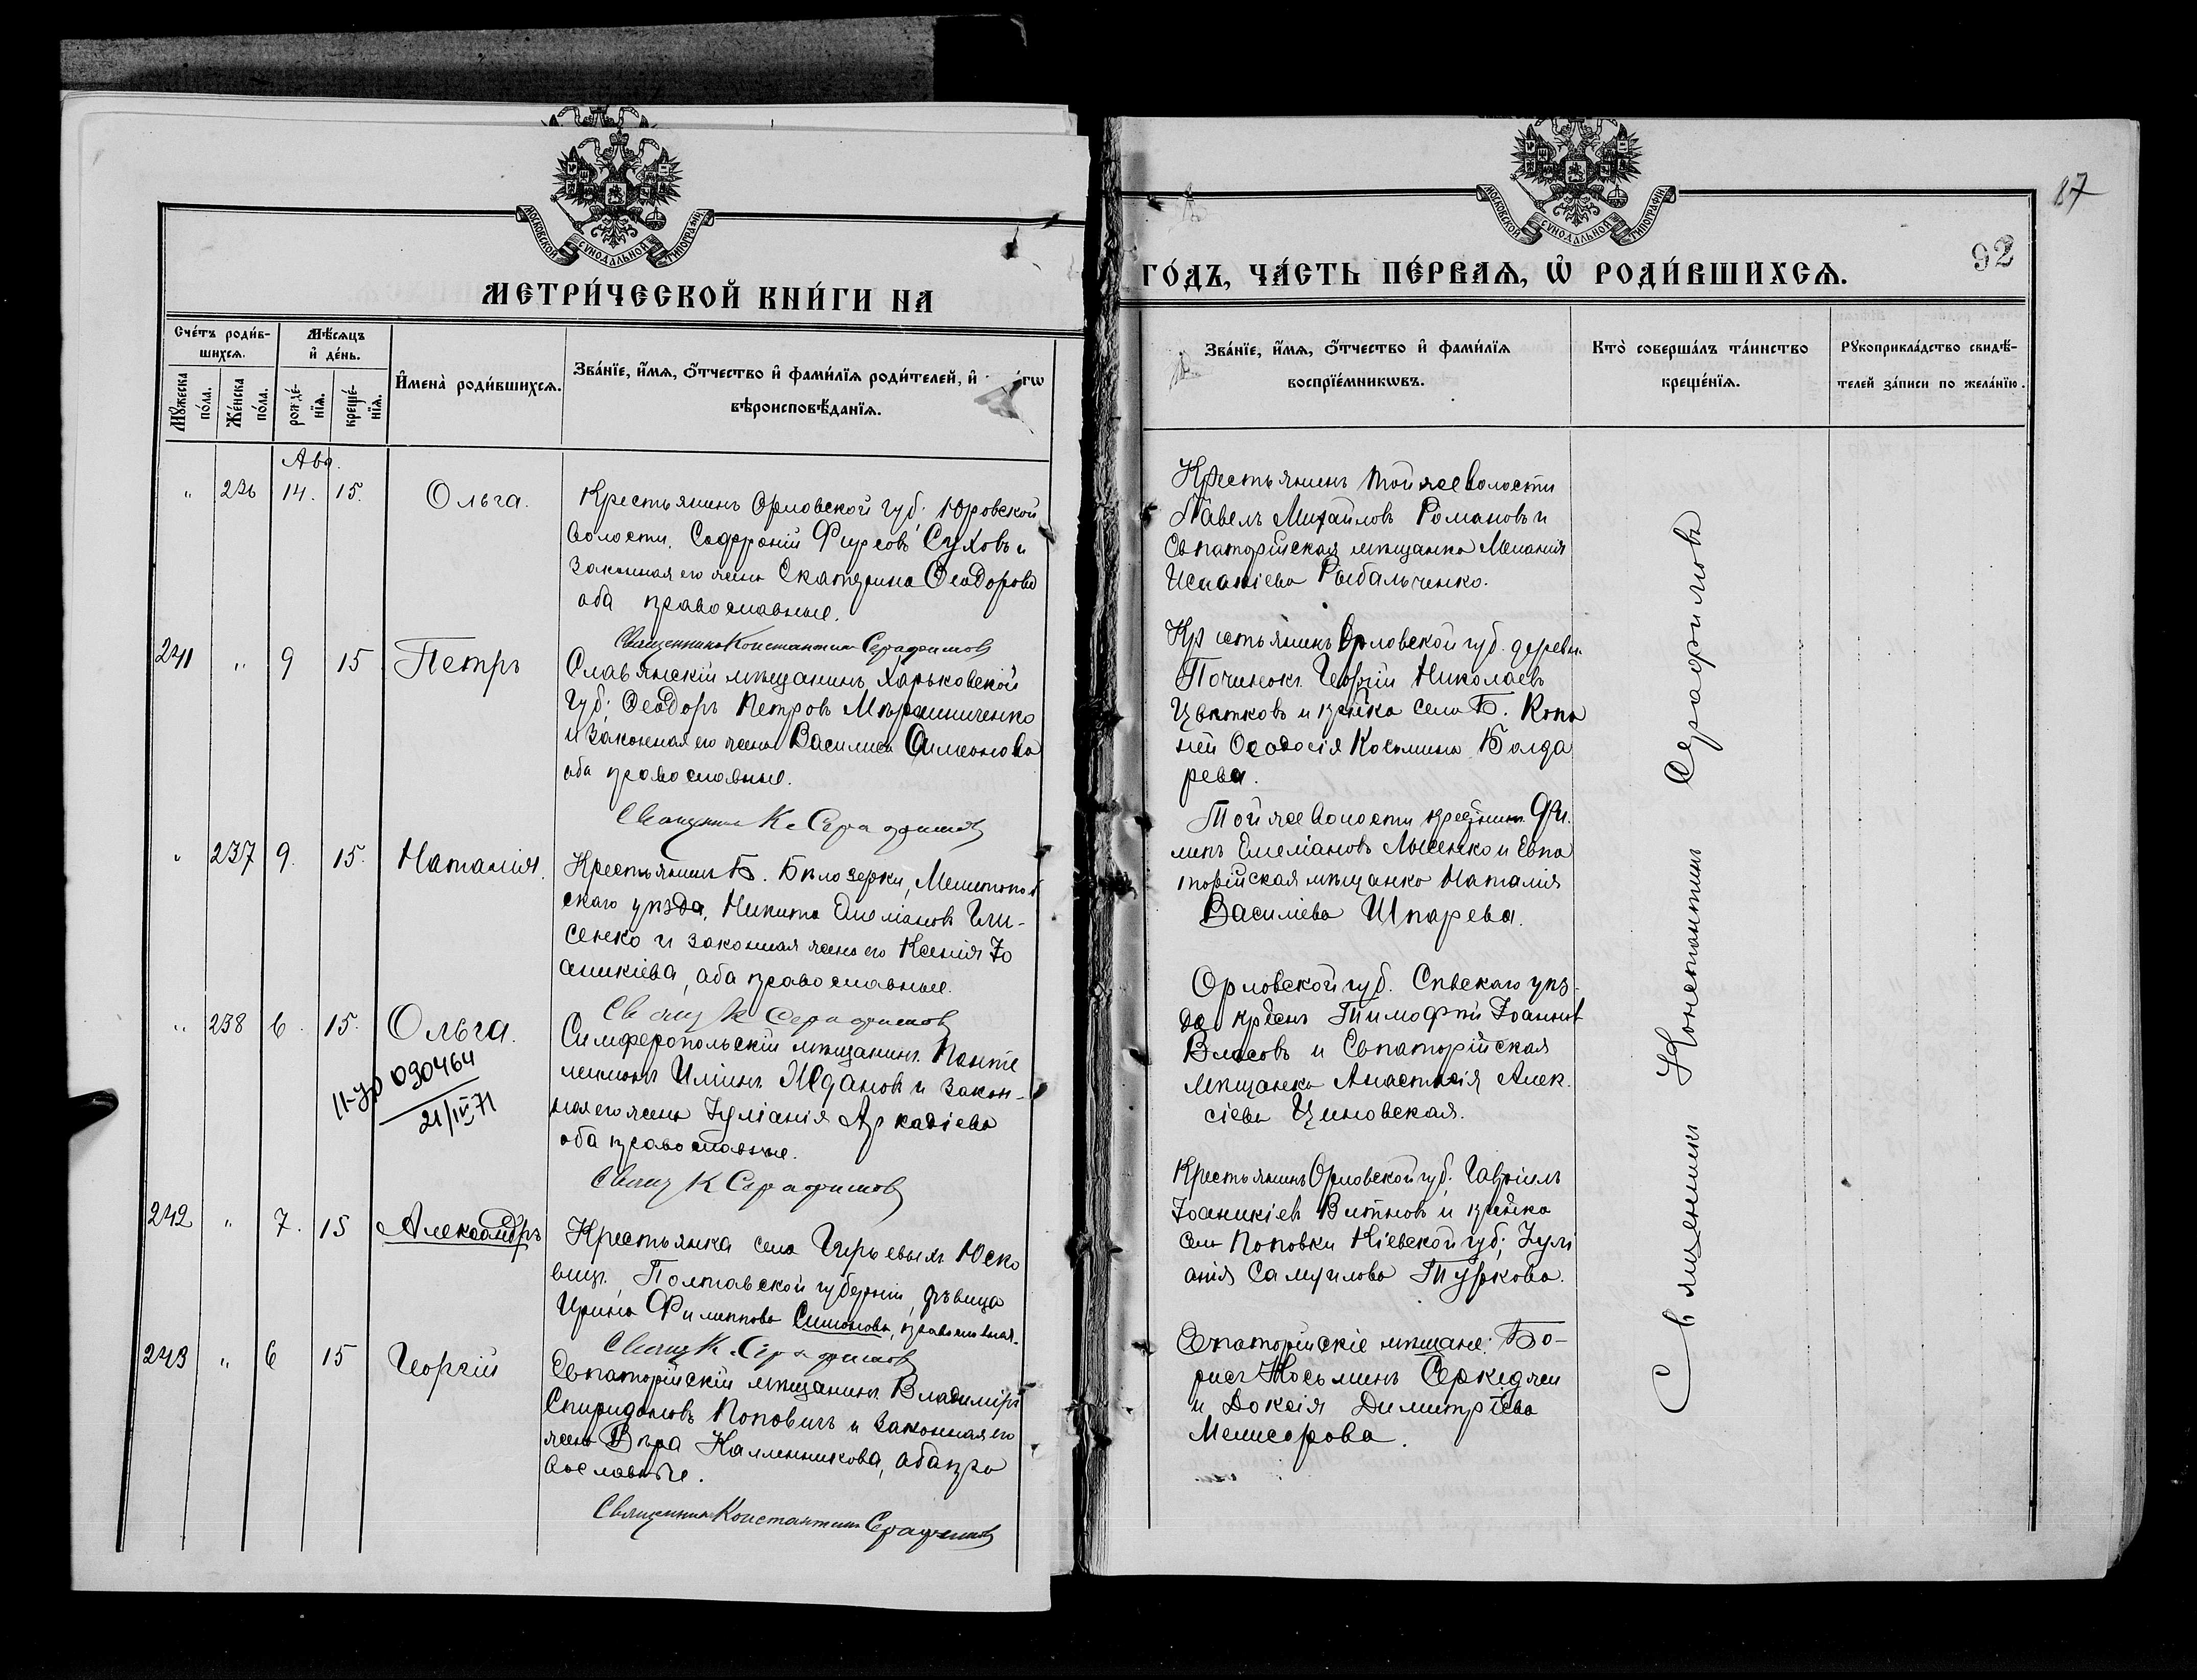 МОСКОВСКОЙ СУНОДАЛЬНОЙ ТИПОГРАФИИ
МЕТРИ́ЧЕСКОЙ КНИ́ГИ НА
Сче́тъ роди́в-
шихсѧ.
Мѣ́сѧцъ
и҆ де́нь.
Мꙋ́жеска
по́ла.
Же́нска
по́ла.
рожде́-
нїѧ.
креще́-
нїѧ.
И҆мена̀ роди́вшихсѧ.
Зва́нїе, и҆́мѧ, ѻ҆́тчество и҆ фами́лїѧ роди́телей, и҆
гѡ
вѣроисповѣ́данїѧ.
Авг.
" 236 14. 15. Ольга.
Крестьянинъ Орловской губ. Юровской
волости, Софроній Фирсовъ Суховъ и
законная его жена Екатерина Ѳеодорова
оба православные.
Священникъ Константинъ Серафимовъ
241 " 9 15 Петръ
Славянскій мѣщанинъ, Харьковской
губ. Ѳеодоръ Петровъ
и законная его жена Василиса Симеонова
оба православные.
Священникъ К. Серафимовъ
" 237 9. 15. Наталія.
Крестьянинъ Б. Бѣлозерки, Мелитополь
скаго уѣзда, Никита Емеліановъ Лы-
сенко и законная жена его Ксенія Іо
аникіева, оба православные.
Свящ К Серафимовъ
" 238 6. 15. Ольга.
II-УО 030464
21/IV 71
Симферопольскій мѣщанинъ Панте
леимонъ Иліинъ Ждановъ и закон-
ная его жена Іуліанія Аркадіева
оба православные.
Свящ К Серафимовъ
242 " 7. 15 Александръ
Крестьянка села Юско
вицъ, Полтавской губерніи, дѣвица
Ирина Филиппова Симонова, православная.
Свящ К. Серафимовъ
243 " 6 15 Георгій
Евпаторійскій мѣщанинъ Владиміръ
Спиридоновъ Поповичъ и законная его
жена Вѣра Каллинникова, оба пра
вославные.
Священникъ Константинъ Серафимовъ
87
92
МОСКОВСКОЙ СУНОДАЛЬНОЙ ТИПОГРАФИИ
ГО́ДЪ, ЧА́СТЬ ПЕ́РВАѦ, Ѡ҆ РОДИ́ВШИХСѦ.
Зва́нїе, и҆́мѧ, ѻ҆́тчество и҆ фами́лїѧ
воспрїе́мникѡвъ.
Кто̀ соверша́лъ та́инство
креще́нїѧ.
Рꙋкоприкла́дство свидѣ́-
телей за́писи по жела́нїю.
Крестьянинъ той же волости
Павелъ Михайловъ Романовъ и
Евпаторійская мѣщанка Меланія
Игнатіева Рыбальченко.
Крестьянинъ Орловской губ. деревни
Починокъ Георгій Николаевъ
Цвѣтковъ и кр-нка села Б. Копа
ней Ѳеодосія Косьмина Болда
рева.
Той же волости кр-нинъ Фи
липъ Емеліановъ Лысенко и Евпа
торійская мѣщанка Наталія
Василіева Шпарева.
Орловской губ. Сѣвскаго уѣз-
да кр-нъ Тимофей Іоанновъ
Власовъ и Евпаторійская
мѣщанка Анастасія Алек
сіева Циновская.
Крестьянинъ Орловской губ. Гавріилъ
Іоаникіевъ и кр-нка
села Поповки Кіевской губ; Іулі
анія Самуилова Туркова.
Евпаторійскіе мѣщане: Бо-
рисъ Косьминъ
и Доксія Димитріева
Мелисарова.
Священникъ Константинъ Серафимовъ